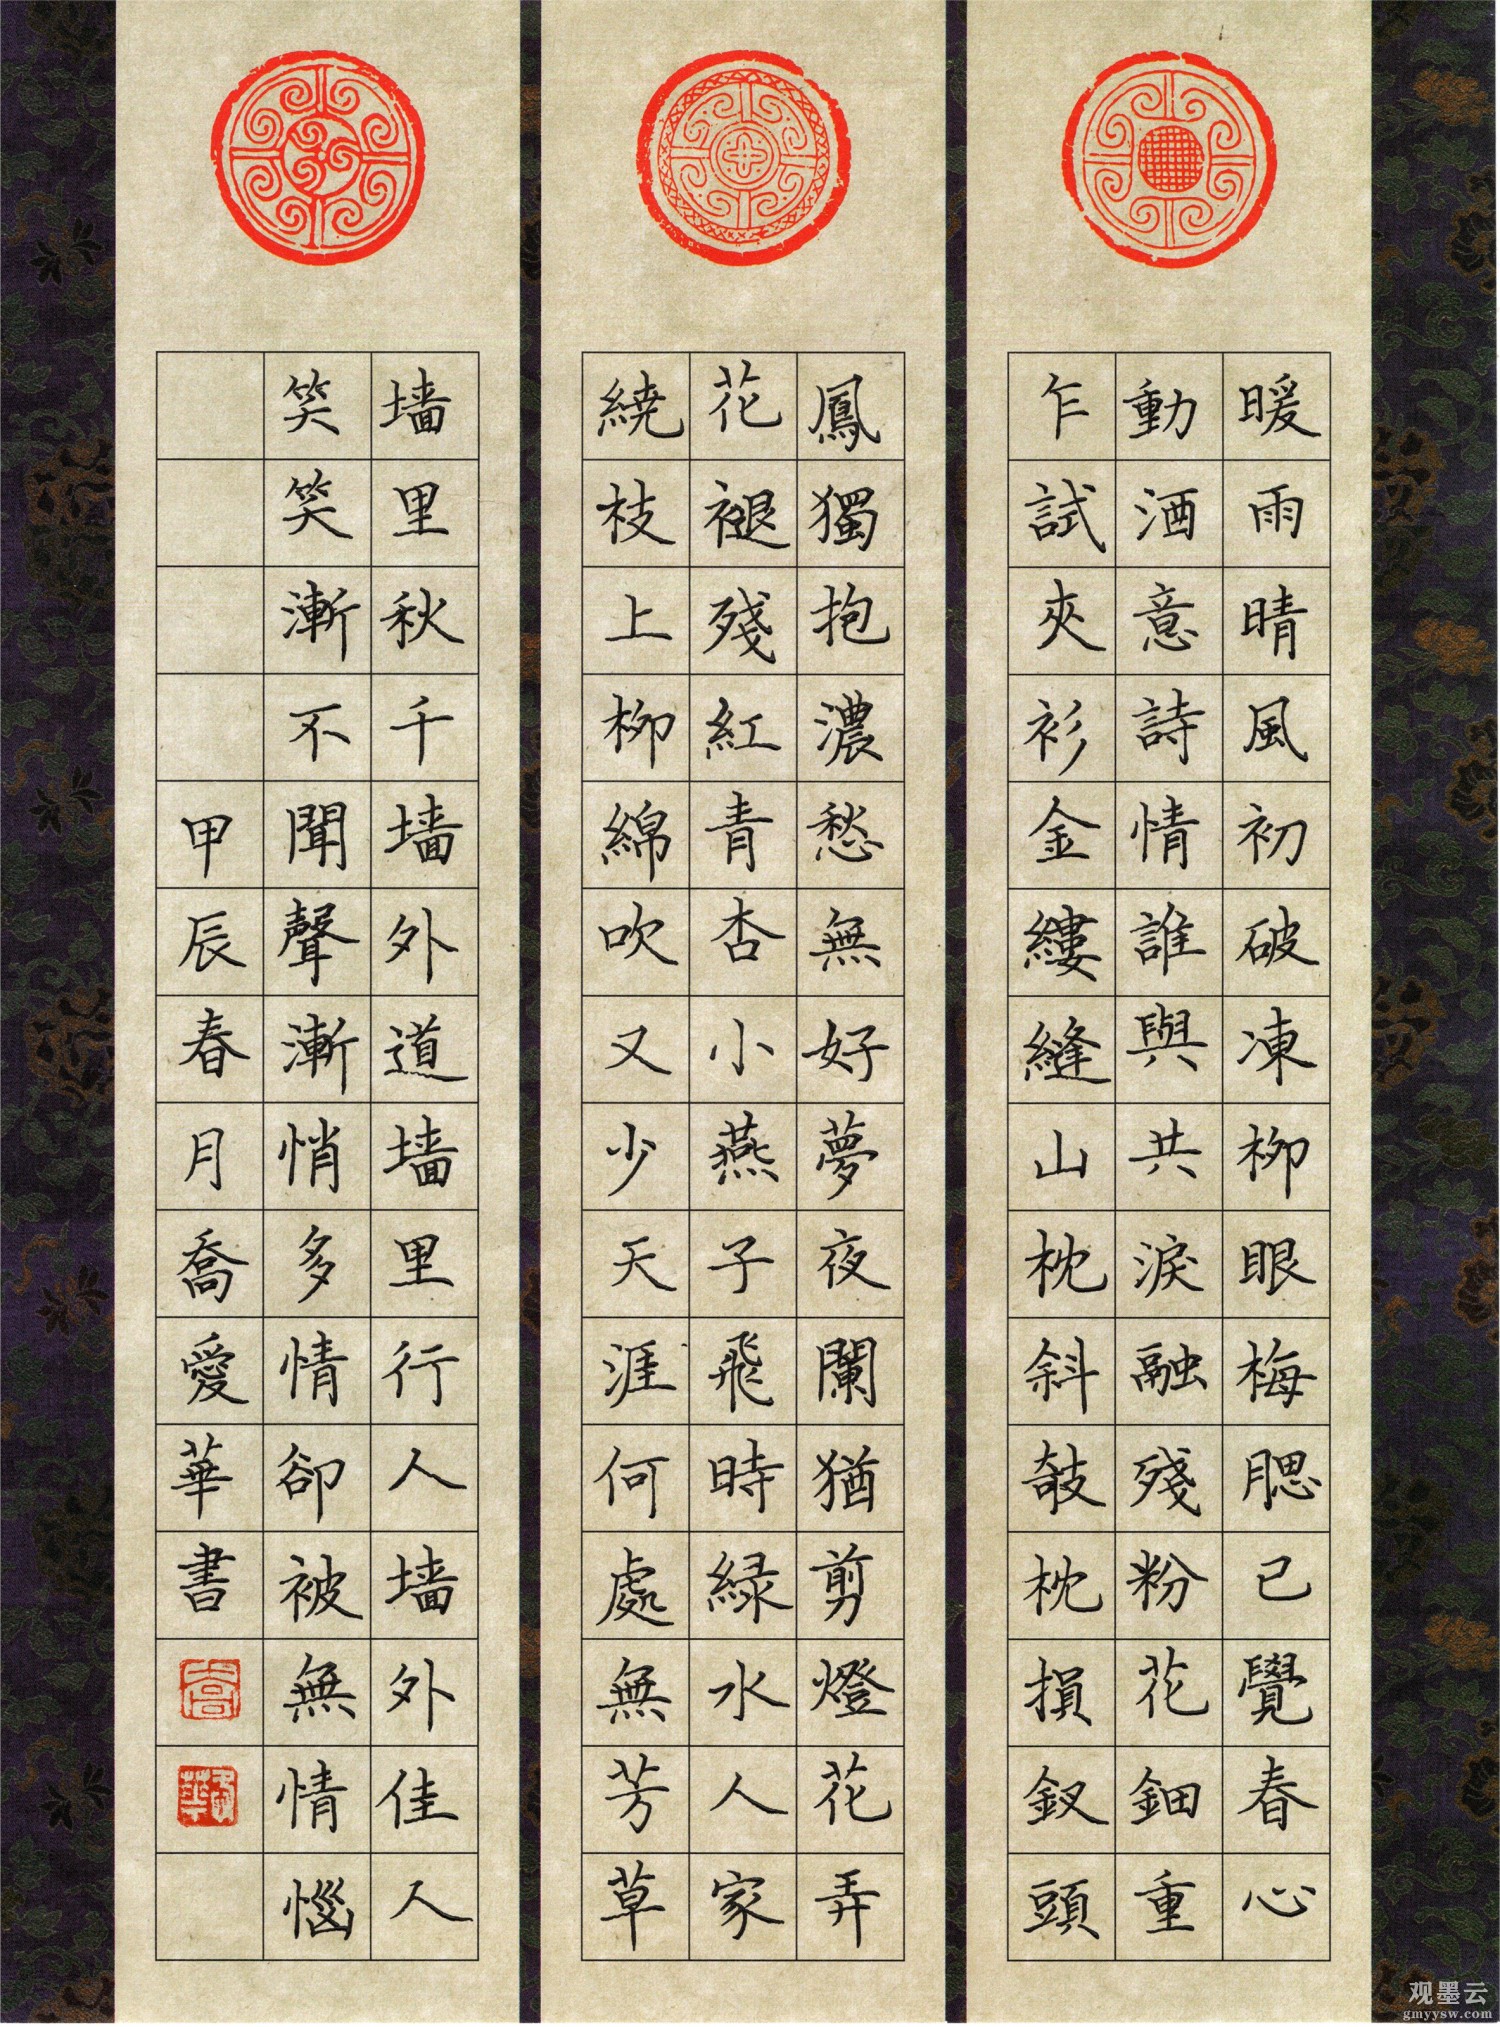 暖雨晴風初破凍柳眼梅腮已覺春心
動酒意詩情誰與共淚融殘粉花鈿重
乍試夾衫金縷縫山枕斜敧枕損釵頭
鳳獨抱濃愁無好夢夜闌猶剪燈花弄
花褪殘紅青杏小燕子飛時緑水人家
繞枝上柳綿吹又少天涯何處無芳草
墙里秋千墙外道墙里行人墙外佳人
笑笑漸不聞聲漸悄多情卻被無情惱
甲辰春月喬愛華書
观墨云
gmyysw.com